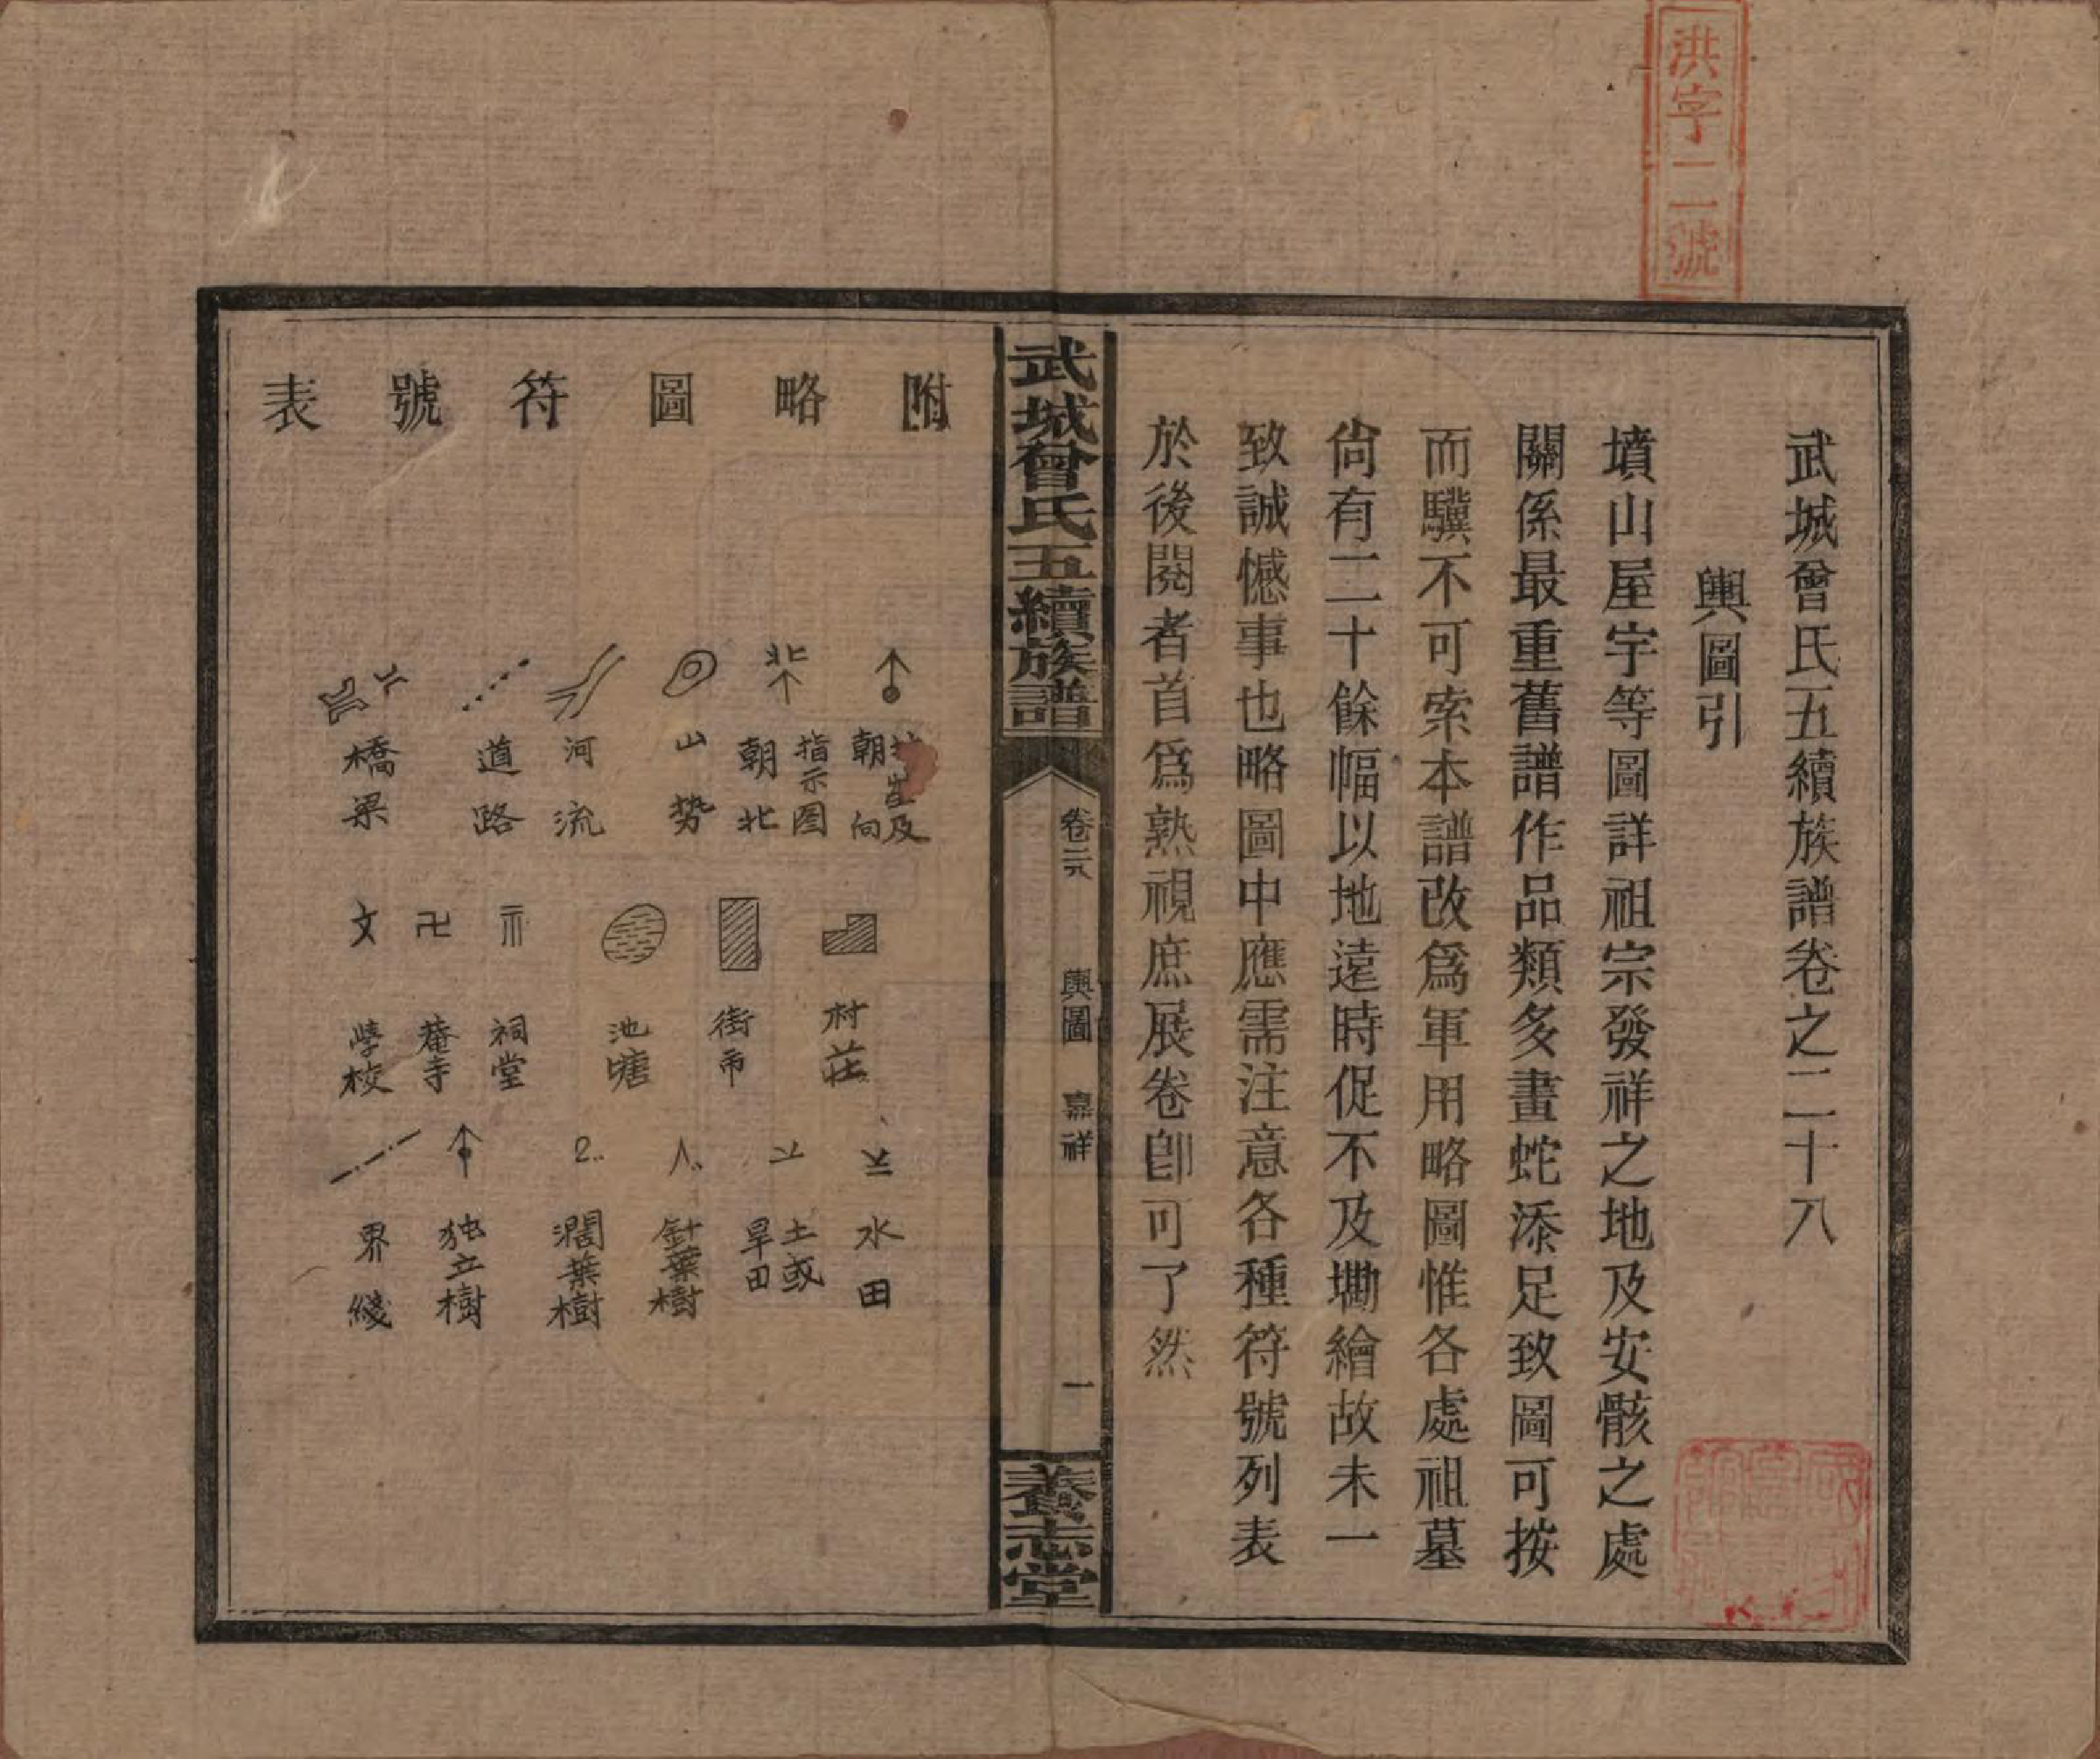 洪字一一號
武城曾氏五續族譜卷之二十八
輿圖引
墳山屋宇等圖詳祖宗發祥之地及安骸之處
關係最重舊譜作品類多畫蛇添足致圖可按
而驥不可索本譜改爲軍用略圖惟各處祖墓
尙有二十餘幅以地遠時促不及墈繪故未一
致誠憾事也略圖中應需注意各種符號列表
於後閱者首爲熟視庶展卷卽可了然
武城曾氏五續族譜
卷二十八
輿圖 嘉祥
一
養志堂
附略圖符號表
及
朝向
北
指示图
朝北
山势
河流
道路
橋梁
村莊
街市
池塘
祠堂
卍
菴寺
文
學校
水田
土或
旱田
針葉樹
濶葉樹
独立樹
界綫